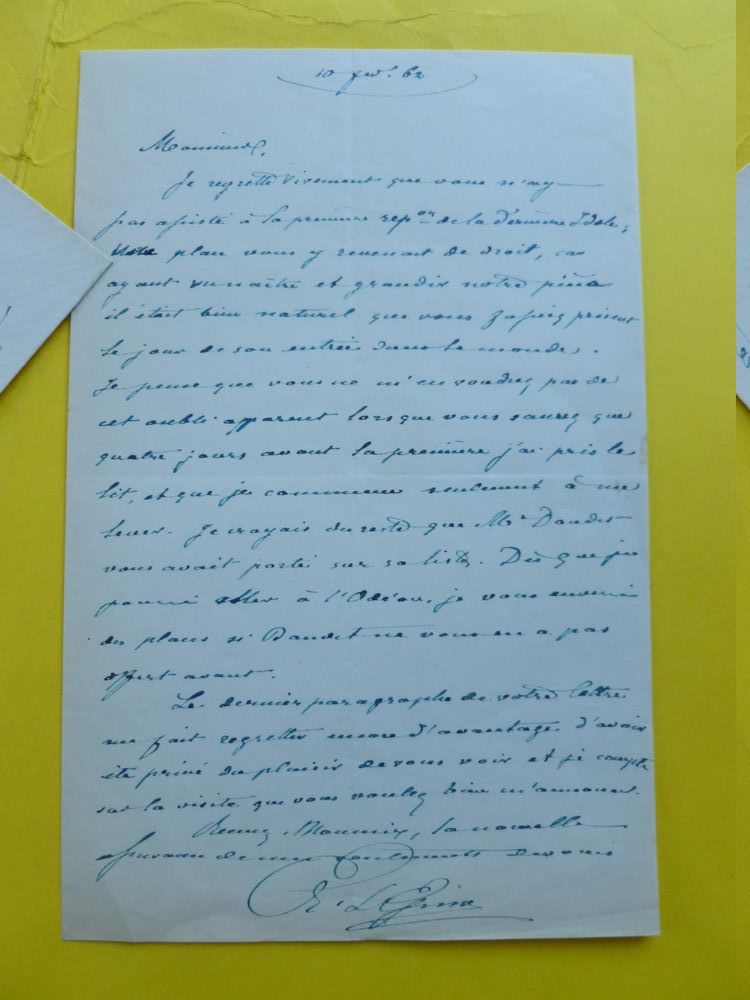 10 fevr. 62
Monsieur,
Je regrette vivement que vous n'ay
pas assisté à la première repon de la Dernière Idole;
Votre place vous y revenait de droit, car
ayant vu naître et grandir notre pièce
il était bien naturel que vous fussiez présent
le jour de son entrée dans le monde.
Je pense que vous ne m'en voudrez pas de
cet oubli apparent lorsque vous saurez que
quatre jours avant la première j'ai pris le
lit, et que je commence seulement à me
lever. Je croyais du reste que Mr Daudet
vous avait porté sur sa liste. Dès que je
pourrai aller à l'Odéon, je vous enverrai
des places si Daudet ne vous en a pas
offert avant.
Le dernier paragraphe de votre lettre
me fait regretter encore d'avantage d'avoir
été privé du plaisir de vous voir et je compte
sur la visite que vous voulez bien m'annoncer.
Recevez, Monsieur, la nouvelle
assurance de mes sentiments dévoués